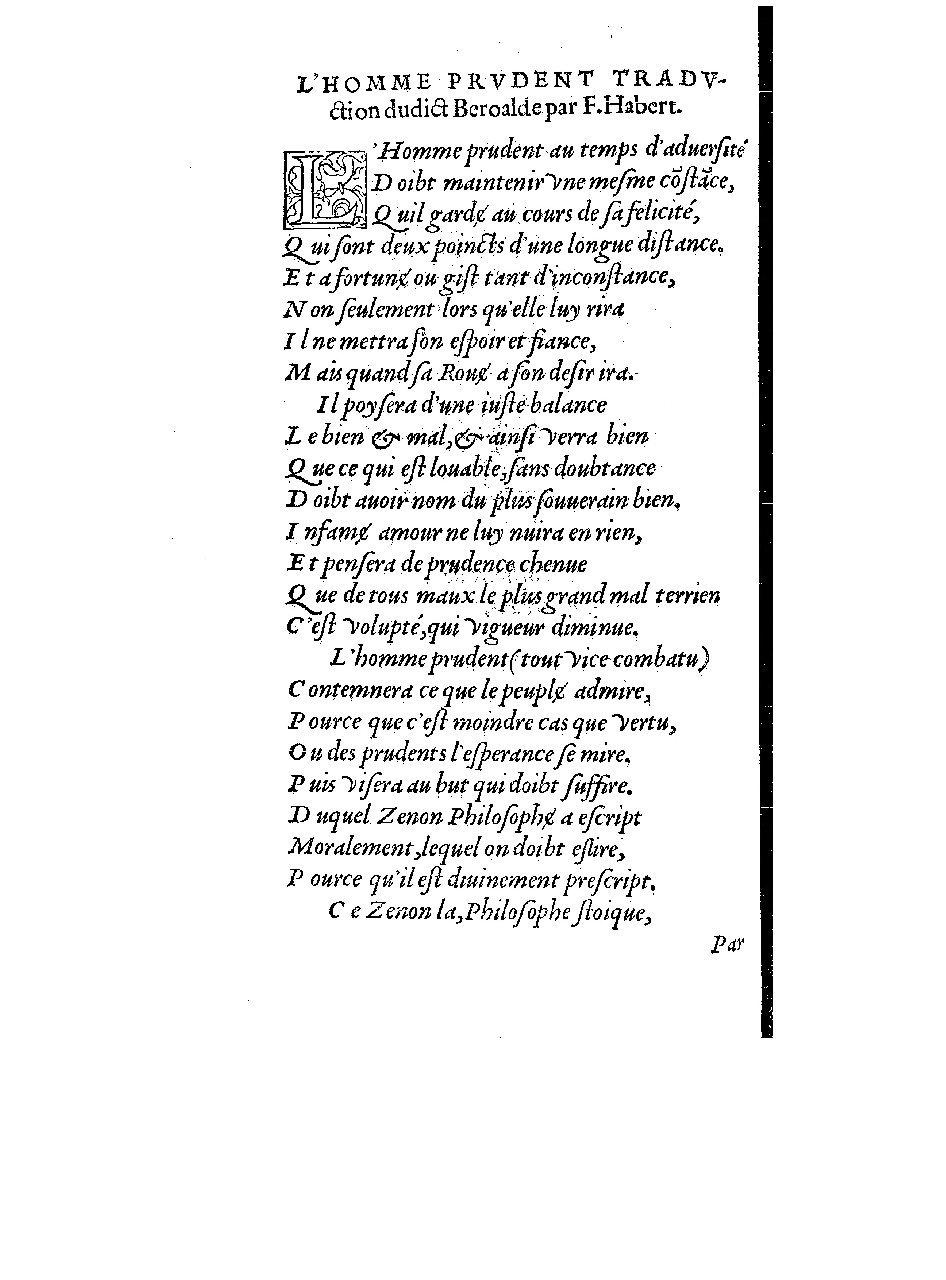 L'HOMME PRVDENT TRADV-
ction dudict Beroalde par F. Habert.
L'Homme prudent au temps d'aduerſité
Doibt maintenir vne meſme cõſtãce,
Quil gardɇ au cours de ſa felicité,
Qui ſont deux poincts d'une longue diſtance.
Et a fortunɇ ou giſt tant d'inconſtance,
Non ſeulement lors qu'elle luy rira
Il ne mettra ſon eſpoir et fiance,
Mais quand ſa Rouɇ a ſon deſir ira.
Il poyſera d'une iuſte balance
Le bien & mal, & ainſi verra bien
Que ce qui eſt louable, ſans doubtance
Doibt auoir nom du plus ſouuerain bien.
Infamɇ amour ne luy nuira en rien,
Et penſera de prudence chenue
Que de tous maux le plus grand mal terrien
C'eſt volupté, qui vigueur diminue.
L'homme prudent (tout vice combatu)
Contemnera ce que le peuplɇ admire,
Pource que c'eſt moindre cas que vertu,
Ou des prudents l'eſperance ſe mire.
Puis viſera au but qui doibt ſuffire.
Duquel Zenon Philoſophɇ a eſcript
Moralement, lequel on doibt eſlire,
Pource qu'il eſt diuinement preſcript.
Ce Zenon la, Philoſophe ſtoique,
Par